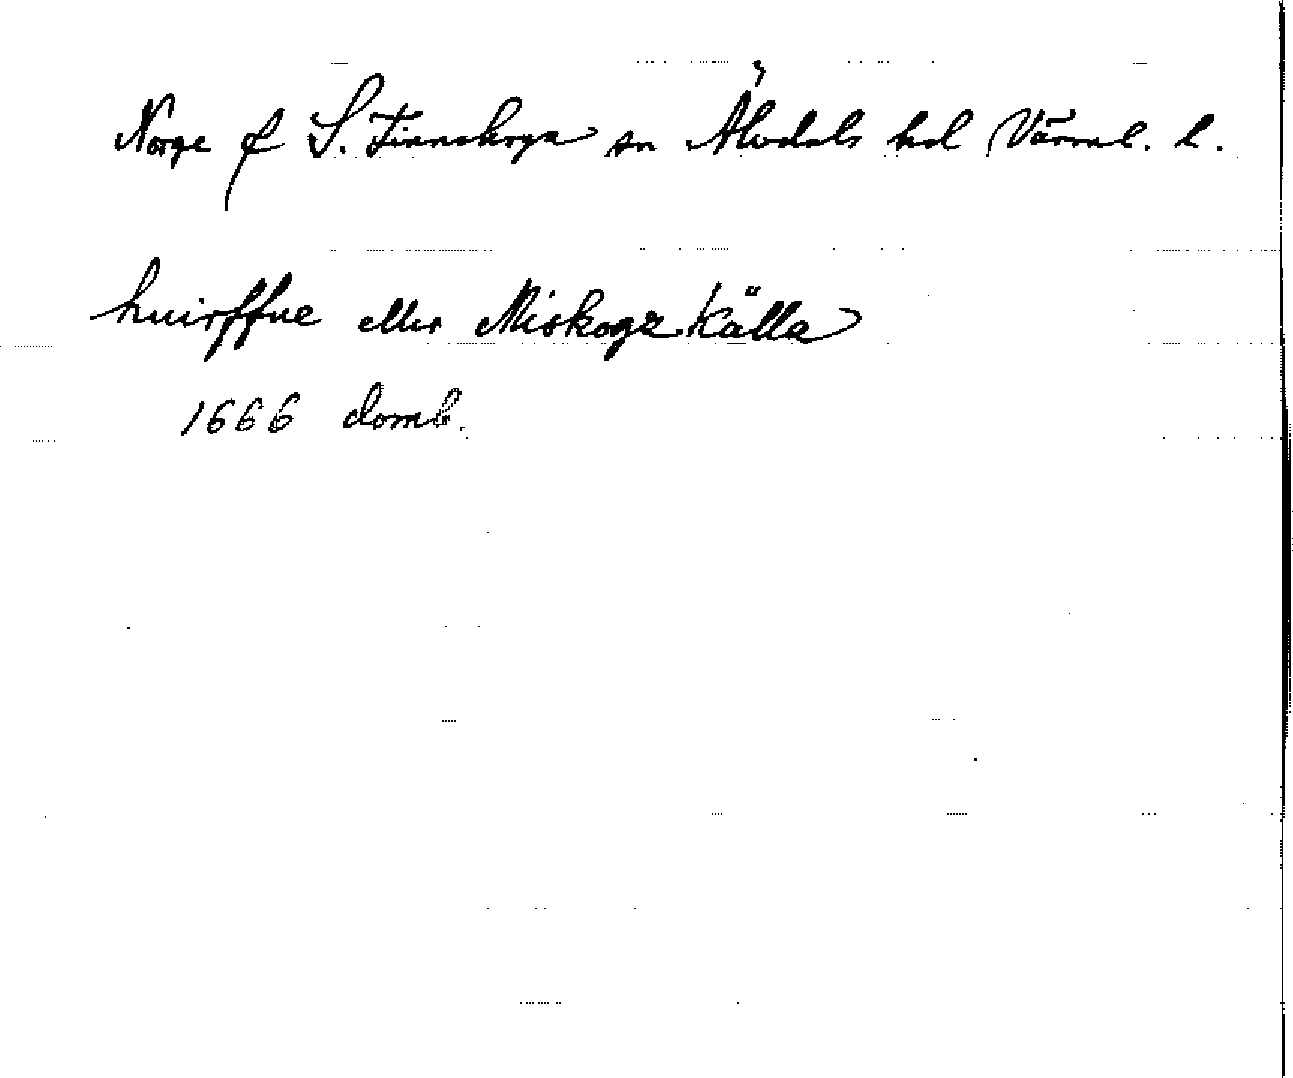 Norge f S. Finnskoga sn Älvdals hd Värml. l.
huirffue eller Miskogz källa
1666 domb.